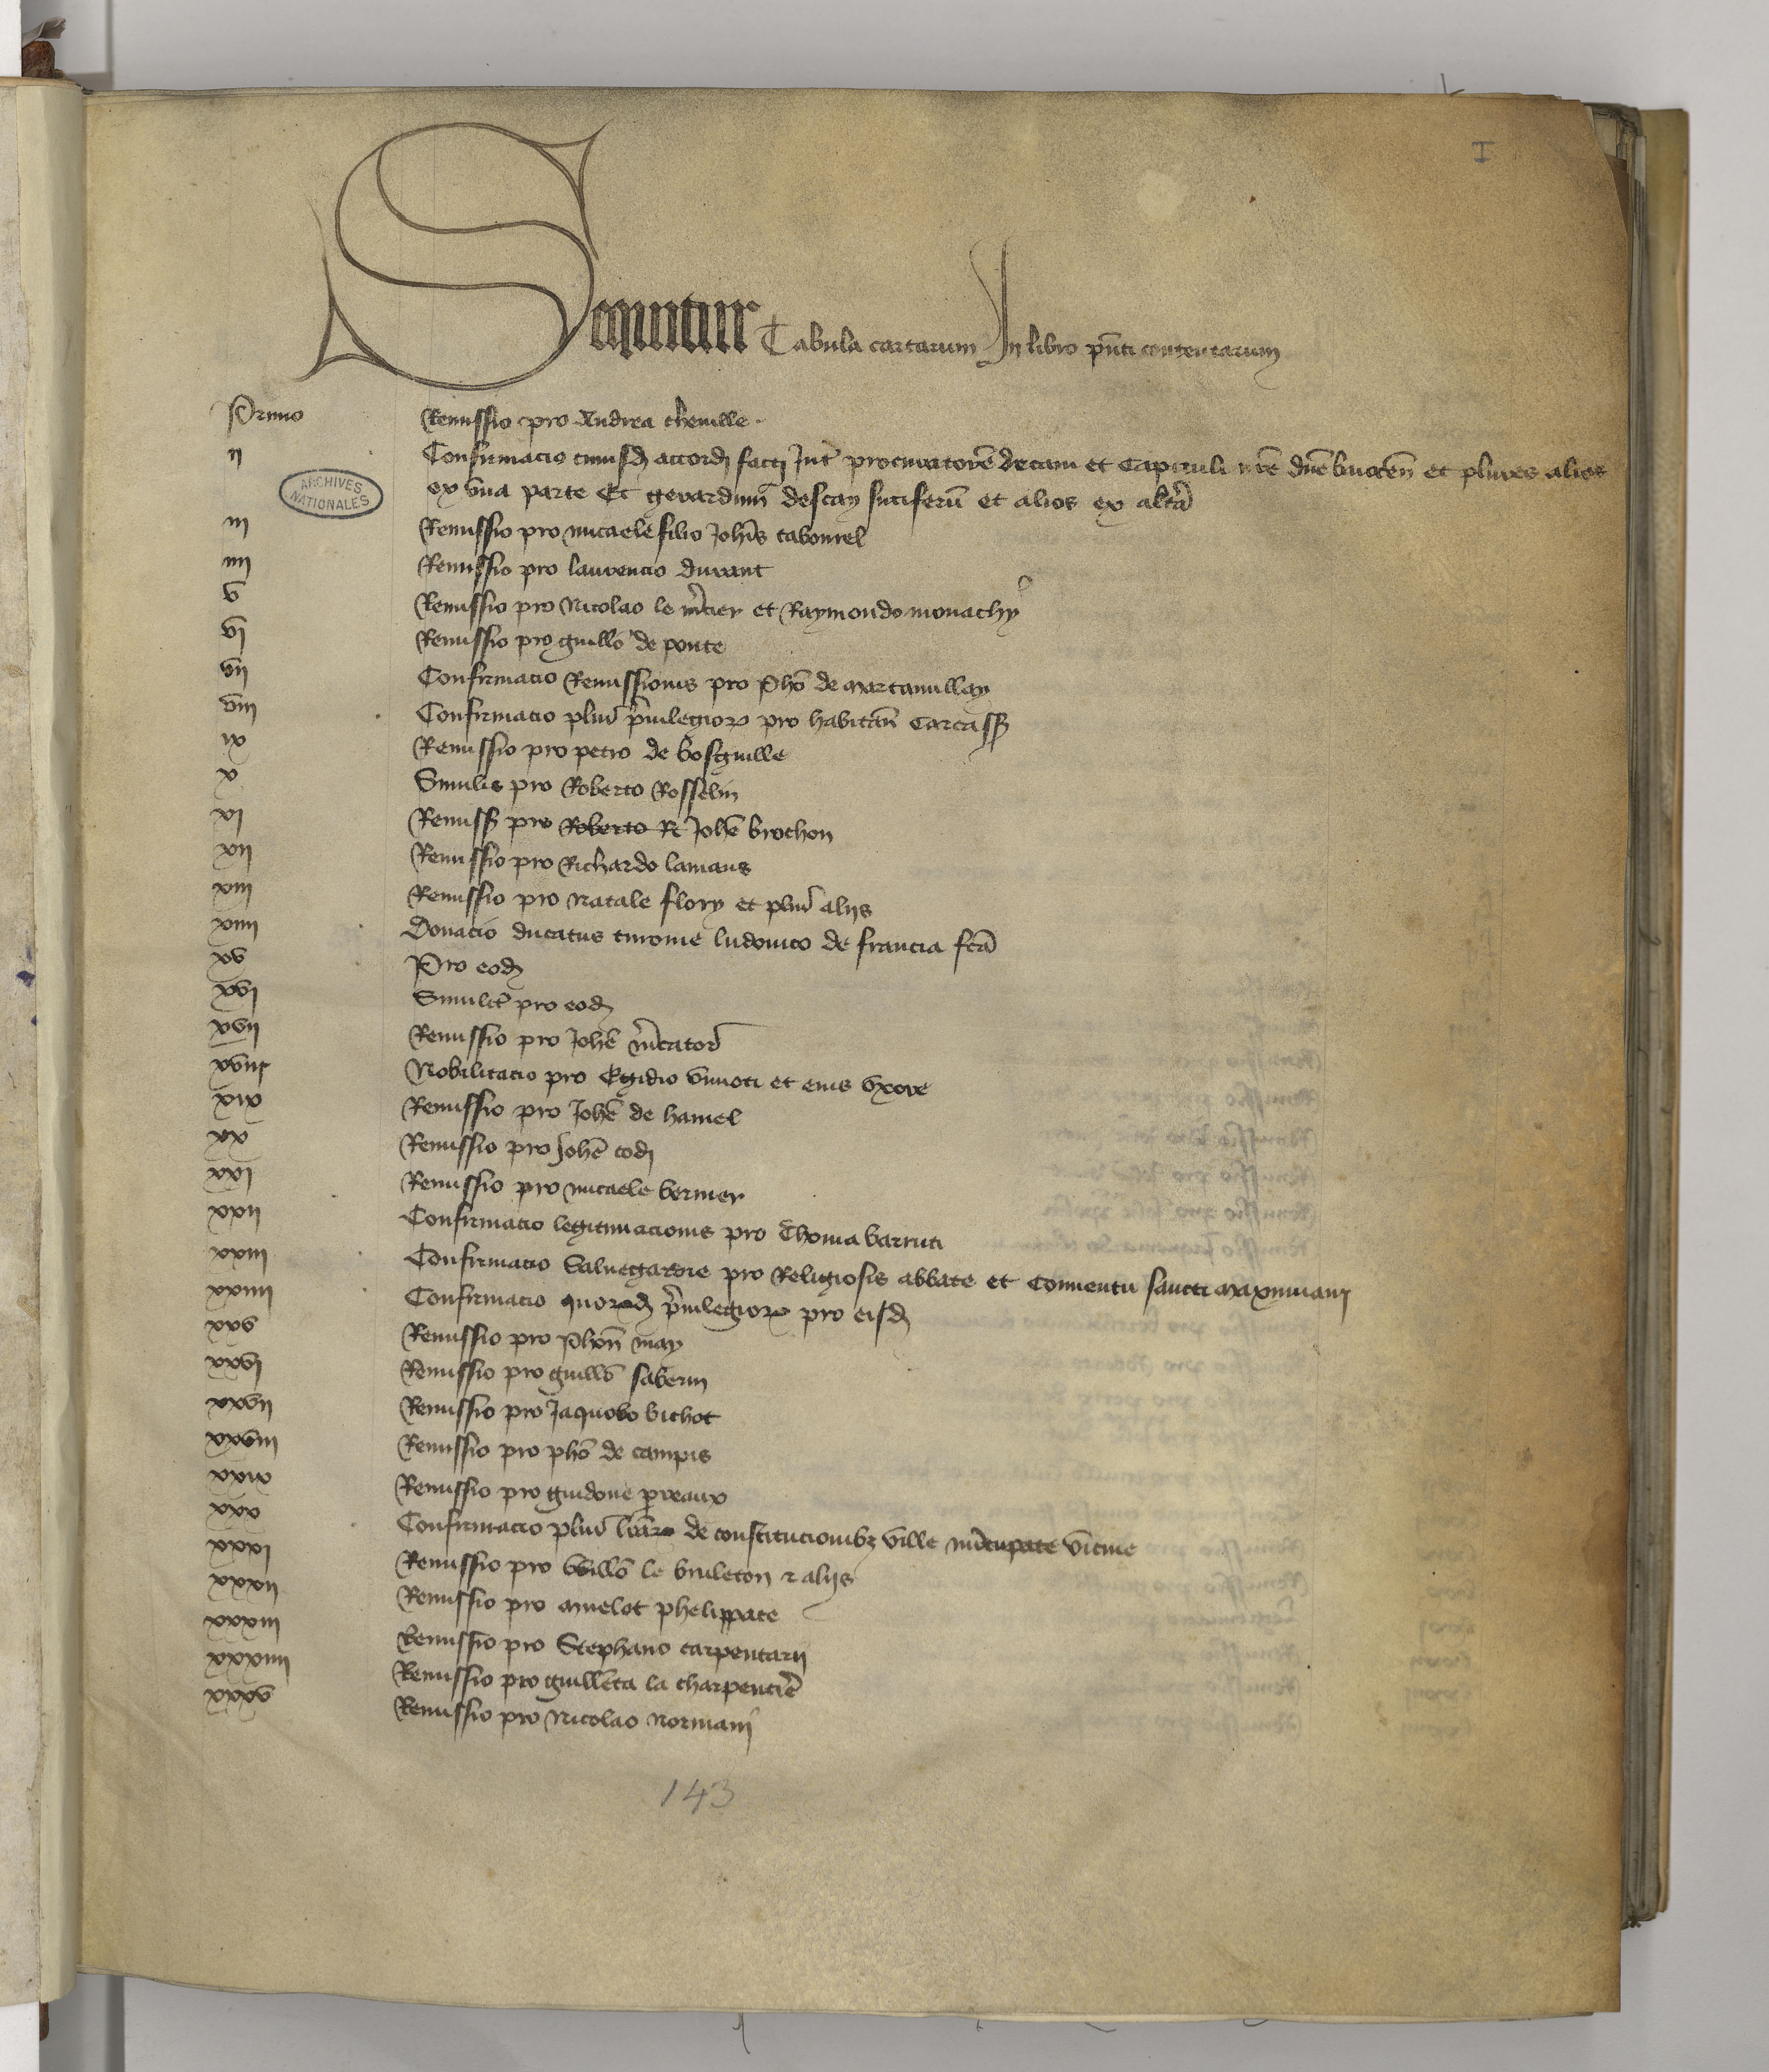 I
Sequntur Tabula cartarum In libro pñti contentarum
Primo Remissio pro Andrea thenille
ii Confirmacio cuiusd accordi facti Int procuratorē decani et Capituli dnē et plures alios
ARCHIVES NATIONALES
ex vna parte Et gerardum descay furiferū et alios ex altā
iii Remissio pro micaele filio Johīs tabourel
iiii Remissio pro laurencio durant
v Remissio pro Nicolao le mcier et Raymondo monachy
vi Remissio pro guillō de ponte
vii Confirmacio Remissionis pro Phō de
viii Confirmacio plur pruilegior pro habitan Carcass
ix Remissio pro petro de bosguille
x Similis pro Roberto Rosselin
xi Remiss pro Roberto R Johē brochon
xii Remissio pro Richardo lamans
xiii Remissio pro Natale flory et plur aliis
xiiii Donacio ducatus turonie ludouico de francia fcā
xv Pro eod
xvi Similit pro eod
xvii Remissio pro Johē mcator
xviii Nobilitacio pro Egidio et eius vxore
xix Remissio pro Johē de hamel
xx Remissio pro Johē cod
xxi Remissio pro micaele vernier
xxii Confirmacio legitimacionis pro Thoma barruti
xxiii Confirmacio Saluegardie pro Religiosis abbate et Conuentu sancti maximiani
xxiiii Confirmacio quord pruilegior pro eisd
xxv Remissio pro Phō may
xxvi Remissio pro guillō saberin
xxvii Remissio pro Jaquobo bichot
xxviii Remissio pro phō de campis
xxix Remissio pro guidone preaux
xxx Confirmacio plur lrār de constitucionibz ville vicine
xxxi Remissio pro Willō le bruleton et aliis
xxxii Remissio pro amelot phelippate
xxxiii Remissio pro Stephano carpentarii
xxxiiii Remissio pro guillēta la charpentiē
xxxv Remissio pro Nicolao Normani
143